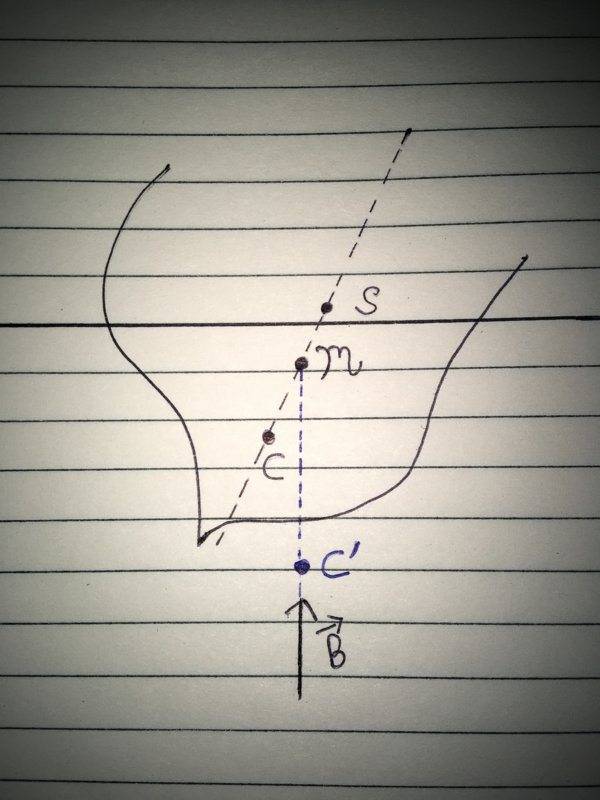 S
M
C
C'
B⃗